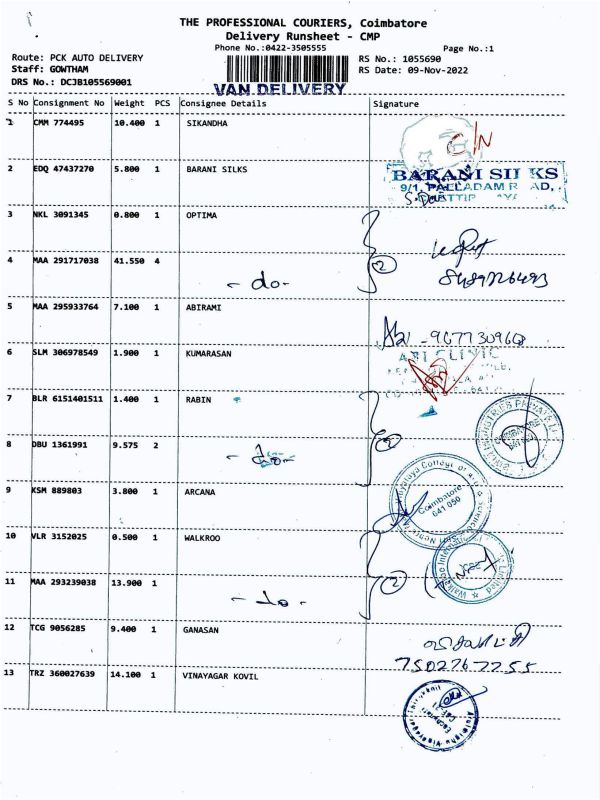 THE PROFESSIONAL COURIERS, Coimbatore
Delivery Runsheet - CMP
Phone No.:0422-3505555 Page No.:1
Route: PCK AUTO DELIVERY RS No.: 1055690
Staff: GOWTHAM RS Date: 09-Nov-2022
DRS No.: DCJB105569001
VAN DELIVERY
S No Consignment No Weight PCS Consignee Details Signature
1 CMM 774495 10.400 1 SIKANDHA
2 EDQ 47437270 5.800 1 BARANI SILKS
BARANI SILKS
9/1, PALLADAM ROAD,
3 NKL 3091345 0.800 1 OPTIMA
4 MAA 291717038 41.550 4
- do - 2
5 MAA 295933764 7.100 1 ABIRAMI
6 SLM 306978549 1.900 1 KUMARASAN
7 BLR 6151401511 1.400 1 RABIN
8 DBU 1361991 9.575 2
- do -
9 KSM 889803 3.800 1 ARCANA
Coimbatore
641 050
10 VLR 3152025 0.500 1 WALKROO
11 MAA 293239038 13.900 1
- do - 2
12 TCG 9056285 9.400 1 GANASAN
7502767255
13 TRZ 360027639 14.100 1 VINAYAGAR KOVIL